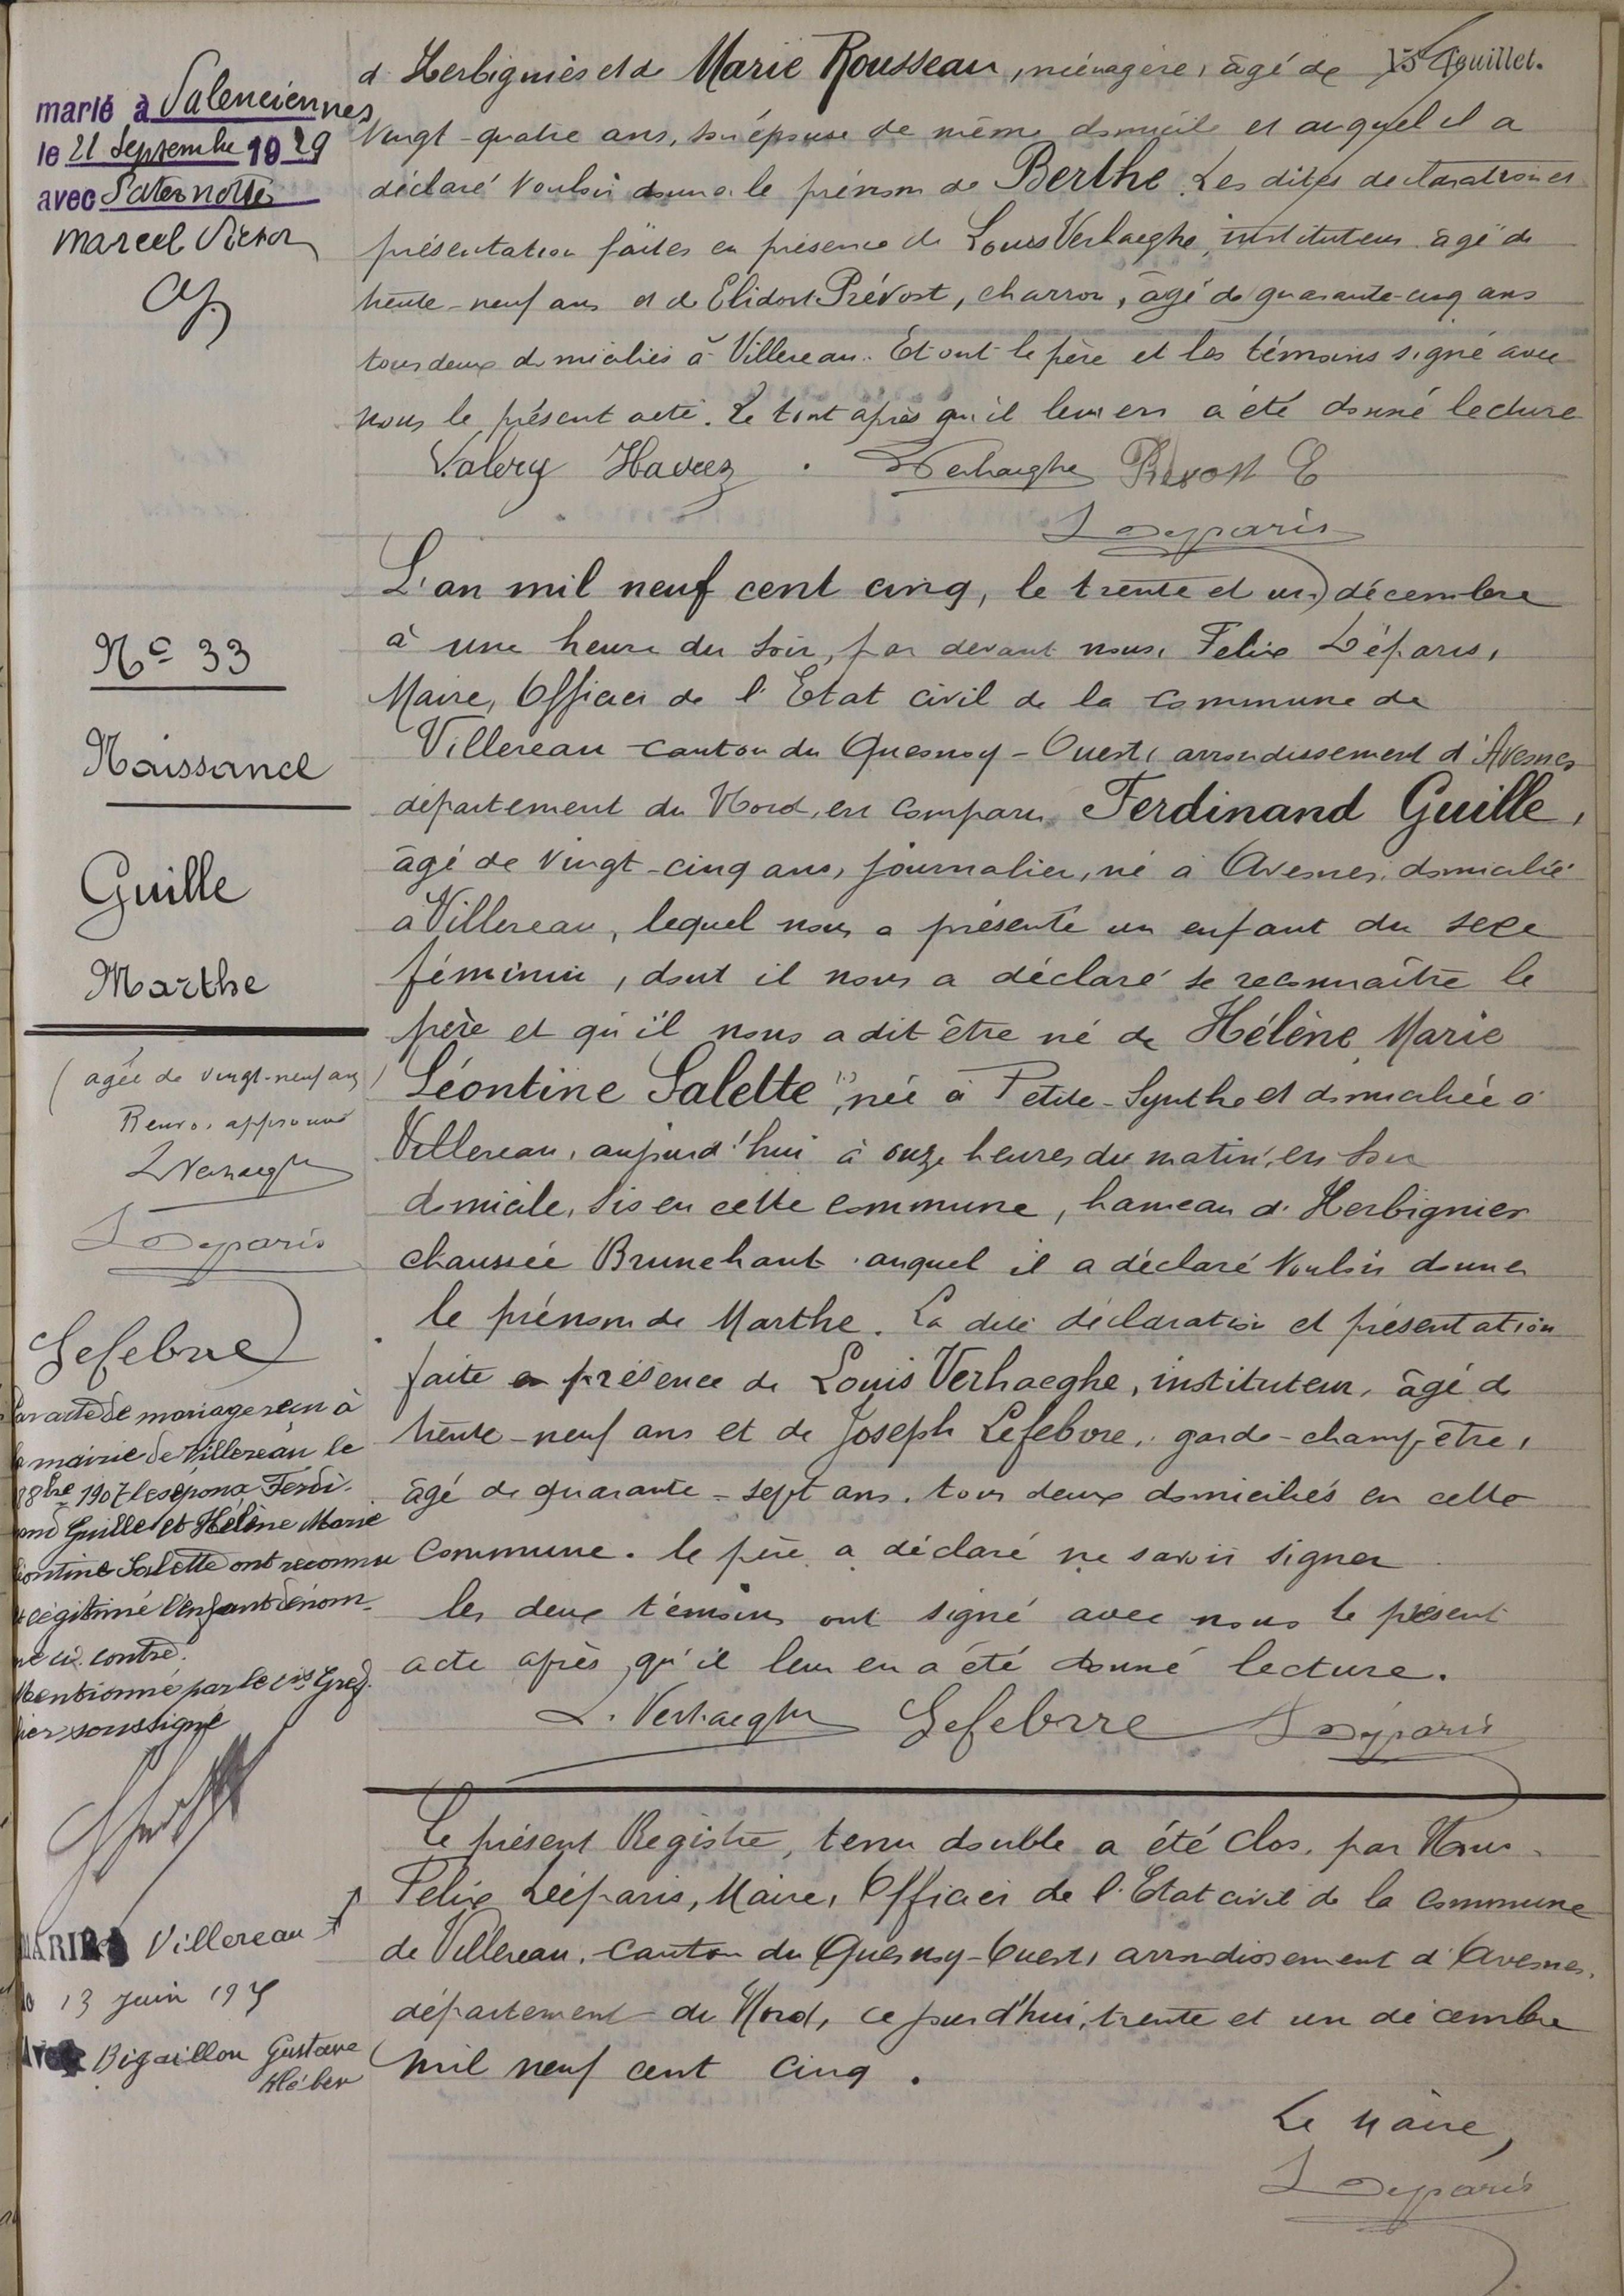 marié à Valenciennes
le 21 Septembre 1929
avec Paternotte
Marcel Victor
15e feuillet.
d'Herbigniès et de Marie Rousseau, ménagère, âgé de
Vingt-quatre ans, son épouse de même domicile et auquel il a
déclaré vouloir donner le prénom de Berthe. Les dites déclaration et
présentation faites en présence de Louis Verhaeghe, instituteur âgé de
trente-neuf ans et de Elidort Prévost, charron, âgé de quarante-cinq ans
tous deux domiciliés à Villereau. Et ont le père et les témoins signé avec
nous le présent acte. Le tout après qu'il leur en a été donné lecture
Valery Havez . Verhaeghe Prevost E
Déparis
N° 33
Naissance
Guille
Marthe
L'an mil neuf cent cinq, le trente et un décembre
à une heure du soir, par devant nous, Felix Déparis,
Maire, Officier de l'Etat civil de la commune de
Villereau canton du Quesnoy-Ouest, arrondissement d'Avesnes
département du Nord, est comparu Ferdinand Guille,
âgé de vingt-cinq ans, journalier, né à Avesnes, domicilié
à Villereau, lequel nous a présenté un enfant du sexe
féminin, dont il nous a déclaré se reconnaître le
père et qu'il nous a dit être né de Hélène Marie
Léontine Salette (1), née à Petite-Synthe et domiciliée à
Villereau, aujourd'hui à onze heures du matin, en son
domicile, sis en cette commune, hameau d'Herbignies
chaussée Brunehaut auquel il a déclaré vouloir donner
le prénom de Marthe. La dite déclaration et présentation
faite en présence de Louis Verhaeghe, instituteur, âgé de
trente-neuf ans et de Joseph Lefebvre, garde-champêtre,
âgé de quarante-sept ans. tous deux domiciliés en cette
commune. le père a déclaré ne savoir signer
les deux témoins ont signé avec nous le présent
acte après qu'il leur en a été donné lecture.
L. Verhaeghe Lefebvre Déparis
(agée de vingt-neuf ans)
Renvoi approuvé
L Verhaeghe
Déparis
Lefebvre
Par acte de mariage reçu à
la mairie de Villereau le
8bre 1907 les époux Ferdi-
nand Guille et Hélène Marie
Léontine Salette ont reconnu
et légitimé l'enfant dénom-
mé ci-contre.
Mentionné par le cis Gref-
fier soussigné
MARIÉ à Villereau
le 13 Juin 19
Avec Bigaillon Gustave
Kléber
Le présent Registre, tenu double a été clos, par Nous
Felix Déparis, Maire, Officier de l'Etat civil de la commune
de Villereau, canton du Quesnoy-Ouest, arrondissement d'Avesnes,
département du Nord, ce jourd'hui, trente et un décembre
mil neuf cent cinq.
Le Maire,
Déparis